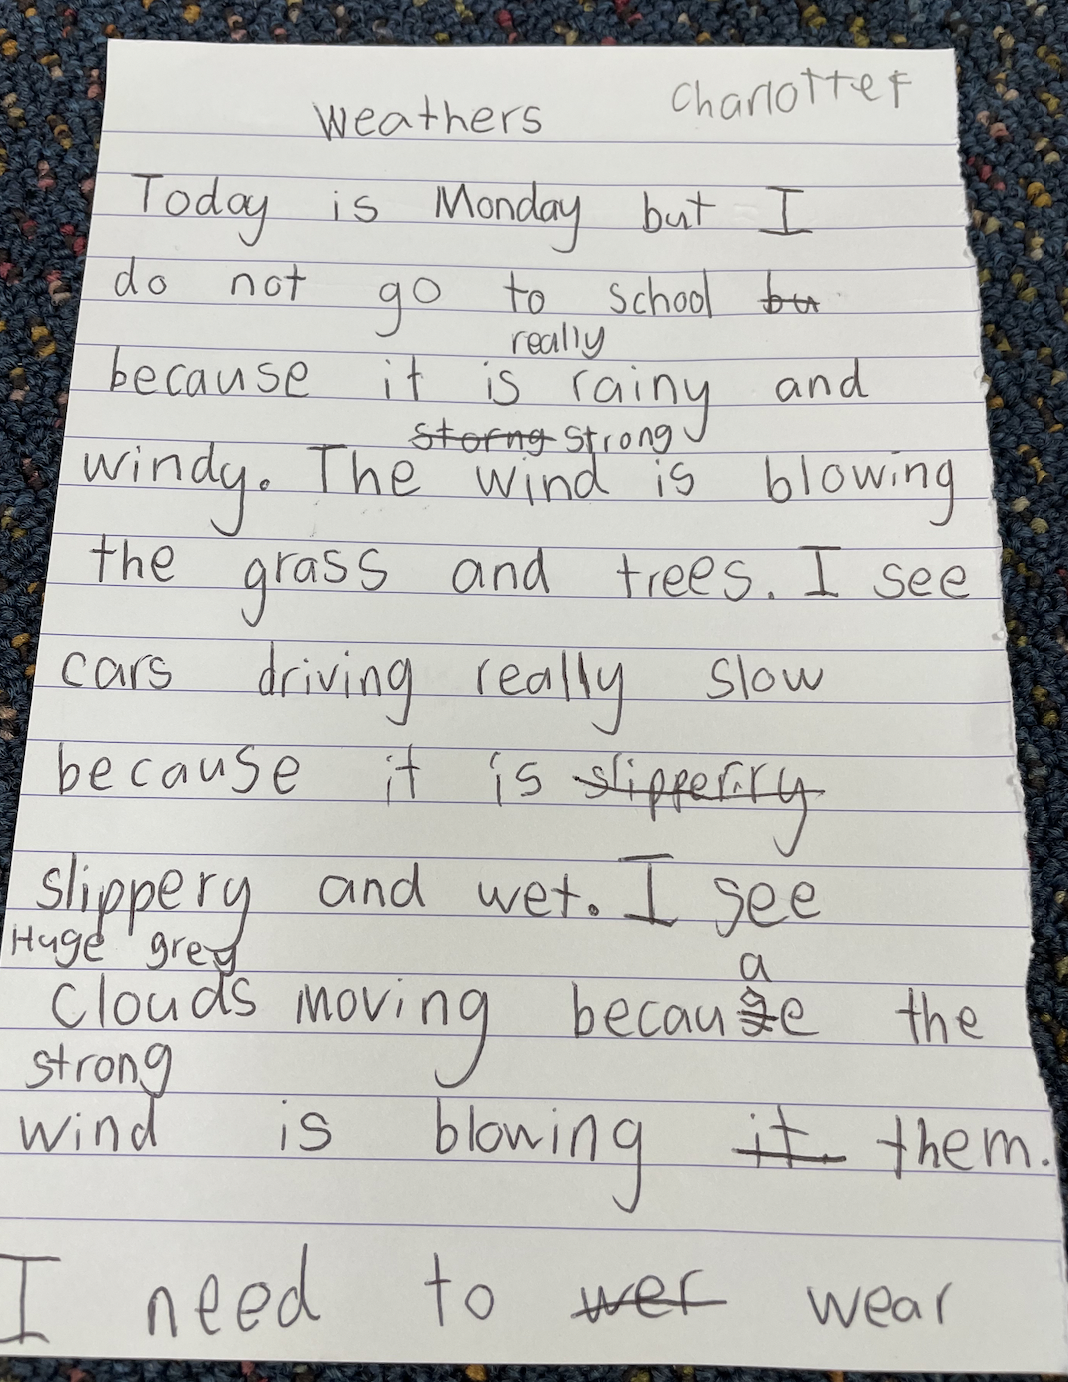 Weathers Charlotte F
Today is Monday but I
do not go to school bu
really
because it is rainy and
storng strong
windy. The wind is blowing
the grass and trees. I see
cars driving really slow
because it is slipperry
slippery and wet. I see
Huge grey
a
clouds moving because the
strong
wind is blowing it them.
I need to wer wear